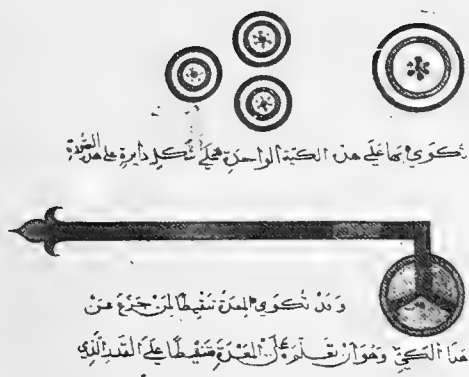 تكوي بها على هذه الكية الواحدة فهي على شكل دايرة على هذه الصورة
وقد تكوى المعدة تنقيطا لمن جزع من
هذا الكي وهو ان تعلم على المعدة تنقيطا على القدر الذي